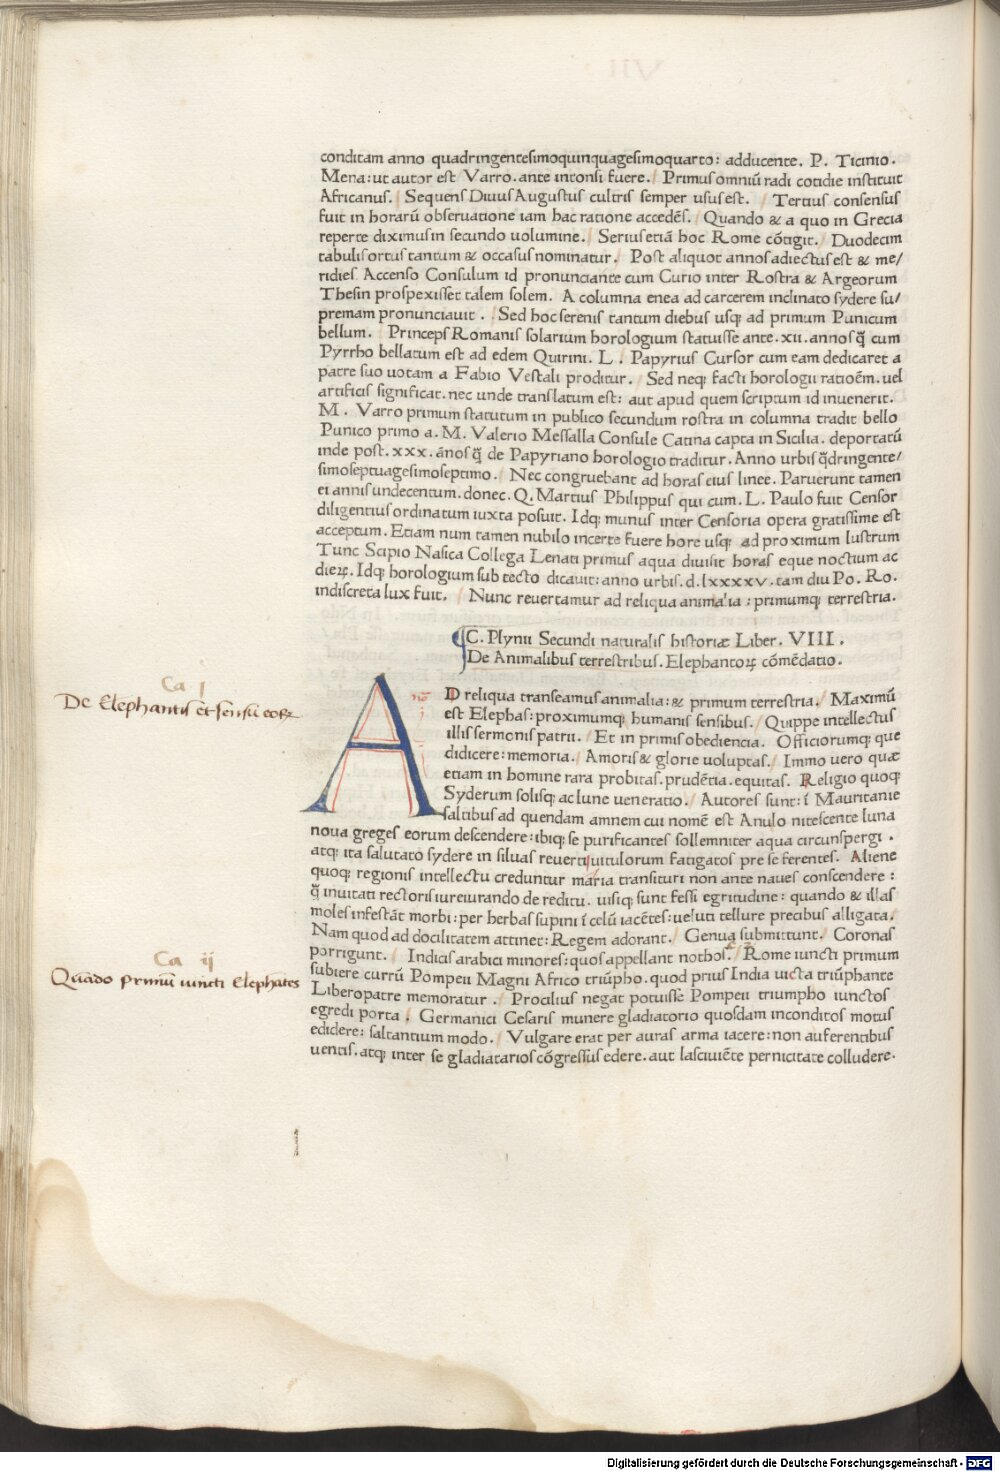 conditam anno quadringentesimoquinquagesimoquarto: adducente. P. Ticinio.
Mena: ut autor est Varro. ante intonsi fuere. Primus omniū radi cotidie instituit
Africanus. Sequens Diuus Augustus cultris semper usus est. Tertius consensus
fuit in horarū obseruatione iam hac ratione accedēs. Quando & a quo in Grecia
reperte diximus in secundo uolumine. Serius etiā hoc Rome cōtigit. Duodecim
tabulis ortus tantum & occasus nominatur. Post aliquot annos adiectus est & me/
ridies Accenso Consulum id pronunciante cum Curio inter Rostra & Argeorum
Thesin prospexisset talem solem. A columna enea ad carcerem inclinato sydere su/
premam pronunciauit. Sed hoc serenis tantum diebus usq; ad primum Punicum
bellum. Princeps Romanis solarium horologium statuisse ante. xii. annos q̄ cum
Pyrrho bellatum est ad edem Quirini. L. Papyrius Cursor cum eam dedicaret a
patre suo uotam a Fabio Vestali proditur. Sed neq; facti horologii ratioēm. uel
artificis significat. nec unde translatum est: aut apud quem scriptum id inuenerit.
M. Varro primum statutum in publico secundum rostra in columna tradit bello
Punico primo a. M. Valerio Messalla Consule Catina capta in Sicilia. deportatū
inde post. xxx. ānos q̄ de Papyriano horologio traditur. Anno urbis q̄dringente/
simoseptuagesimoseptimo. Nec congruebant ad horas eius linee. Paruerunt tamen
ei annis undecentum. donec. Q. Martius Philippus qui cum. L. Paulo fuit Censor
diligentius ordinatum iuxta posuit. Idq; munus inter Censoria opera gratissime est
acceptum. Etiam num tamen nubilo incerte fuere hore usq; ad proximum lustrum
Tunc Scipio Nasica Collega Lenati primus aqua diuisit horas eque noctium ac
dieꝝ. Idq; horologium sub tecto dicauit: anno urbis. d. lxxxxv. tam diu Po. Ro.
indiscreta lux fuit. Nunc reuertamur ad reliqua animalia: primumq; terrestria.
C. Plynii Secundi naturalis historiæ Liber. VIII.
De Animalibus terrestribus. Elephantoꝝ cōmēdatio.
Ca j
De Elephantis et sensu eoꝝ
AD reliqua transeamus animalia: & primum terrestria. Maximū
est Elephas: proximumq; humanis sensibus. Quippe intellectus
illis sermonis patrii. Et in primis obediencia. Officiorumq; que
didicere: memoria. Amoris & glorie uoluptas. Immo uero quæ
etiam in homine rara probitas. prudētia. equitas. Religio quoq;
Syderum solisq; ac lune ueneratio. Autores sunt: ī Mauritanie
saltibus ad quendam amnem cui nomē est Anulo nitescente luna
noua greges eorum descendere: ibiq; se purificantes sollemniter aqua circunspergi.
atq; ita salutato sydere in siluas reuerti uitulorum fatigatos pre se ferentes. Aliene
quoq; regionis intellectu creduntur maria transituri non ante naues conscendere:
q̄ inuitati rectoris iureiurando de reditu. uisiq; sunt fessi egritudine: quando & illas
moles infestāt morbi: per herbas supini ī celū iacētes: ueluti tellure precibus alligata.
Nam quod ad docilitatem attinet: Regem adorant. Genua submittunt. Coronas
porrigunt. Indicis arabici minores: quos appellant nothos. Rome iuncti primum
Ca ij
Quādo primū iuncti Elephātes
subiere currū Pompeii Magni Africo triūpho. quod prius India uicta triūphante
Liberopatre memoratur. Procilius negat potuisse Pompeii triumpho iunctos
egredi porta. Germanici Cesaris munere gladiatorio quosdam inconditos motus
edidere: saltantium modo. Vulgare erat per auras arma iacere: non auferentibus
uentis. atq; inter se gladiatarios cōgressus edere. aut lasciuiēte pernicitate colludere.
Digitalisierung gefördert durch die Deutsche Forschungsgemeinschaft - DFG